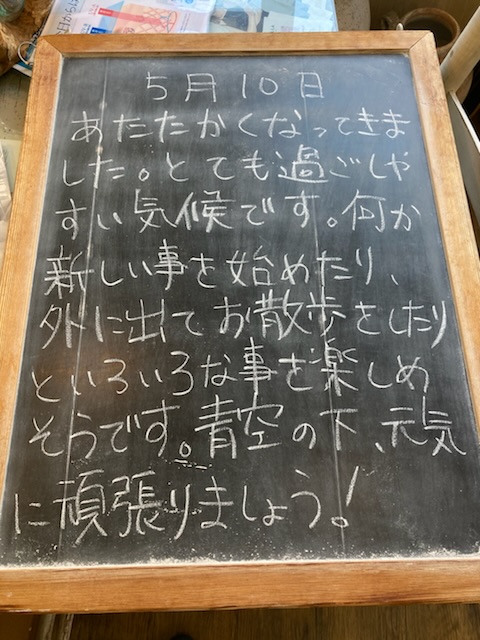 5月10日
あたたかくなってきま
した。とても過ごしや
すい気候です。何か
新しい事を始めたり、
外に出てお散歩をしたり
といろいろな事を楽しめ
そうです。青空の下、元気
に頑張りましょう!